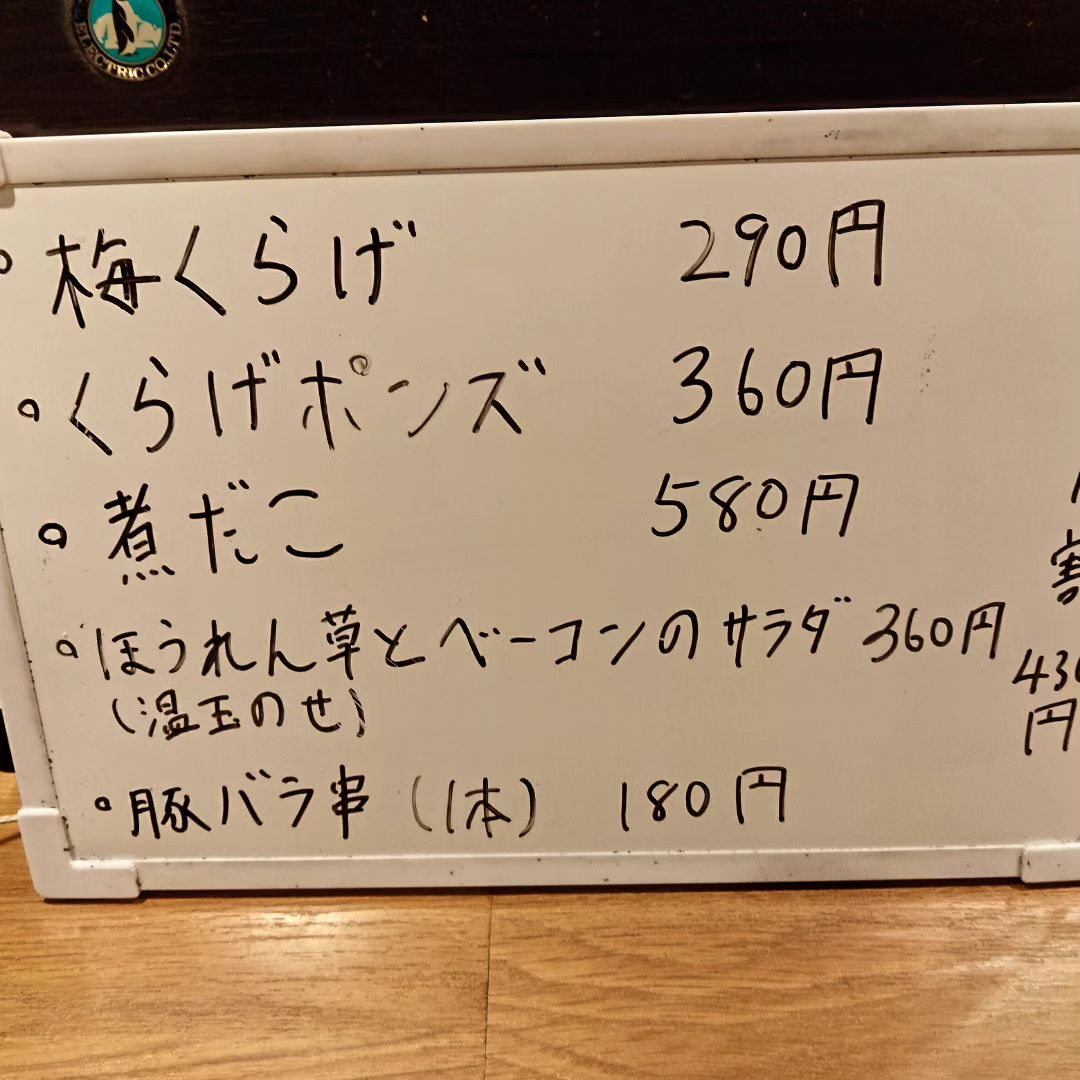 ELECTRIC CO.,LTD.
梅くらげ 290円
くらげポンズ 360円
煮だこ 580円
ほうれん草とベーコンのサラダ 360円
(温玉のせ)
豚バラ串 (1本) 180円
割
430
円